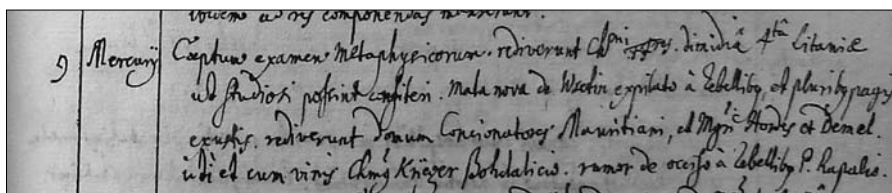 vocem ad res componendas
9 Mercurij Cœptum examen Metaphysicorum. rediverunt dimidiâ 4tâ Litaniæ
ut studiosi possint confiteri. Mala nova de Wsetin expilato à rebellibq, et pluribq pagis
exustis. rediverunt domum Concionatores Mauritiani, et Mgri Hordis et Demel.
uti et cum vinis Krieger Bohdalicio. rumor de occiso à rebellibq P. Rapalio